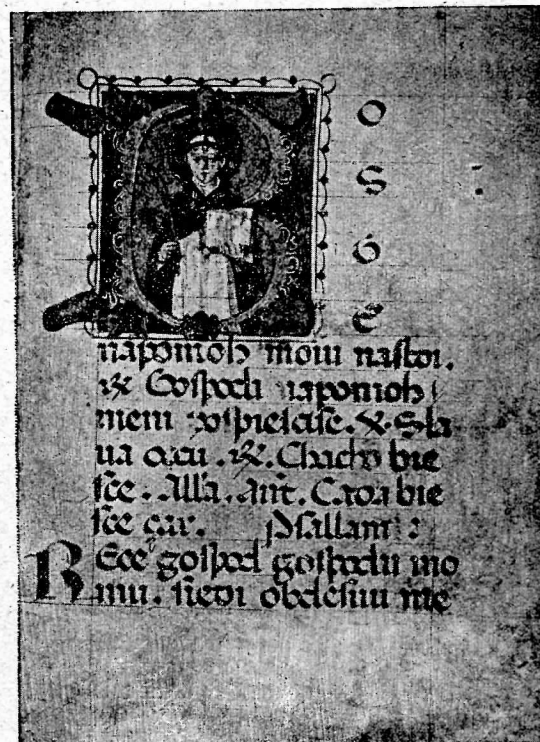 B
O
S
G
E
napomoh moiu nastoi.
℟ Gospodi napomoh
meni pospiescise. ℣. Sla
ua ocu. ℟. Chacho bie
sce. Alla. Ant. Cada bie
sce Psallam:
Rece gospod gospodu mo
mu. siedi obdesnu me